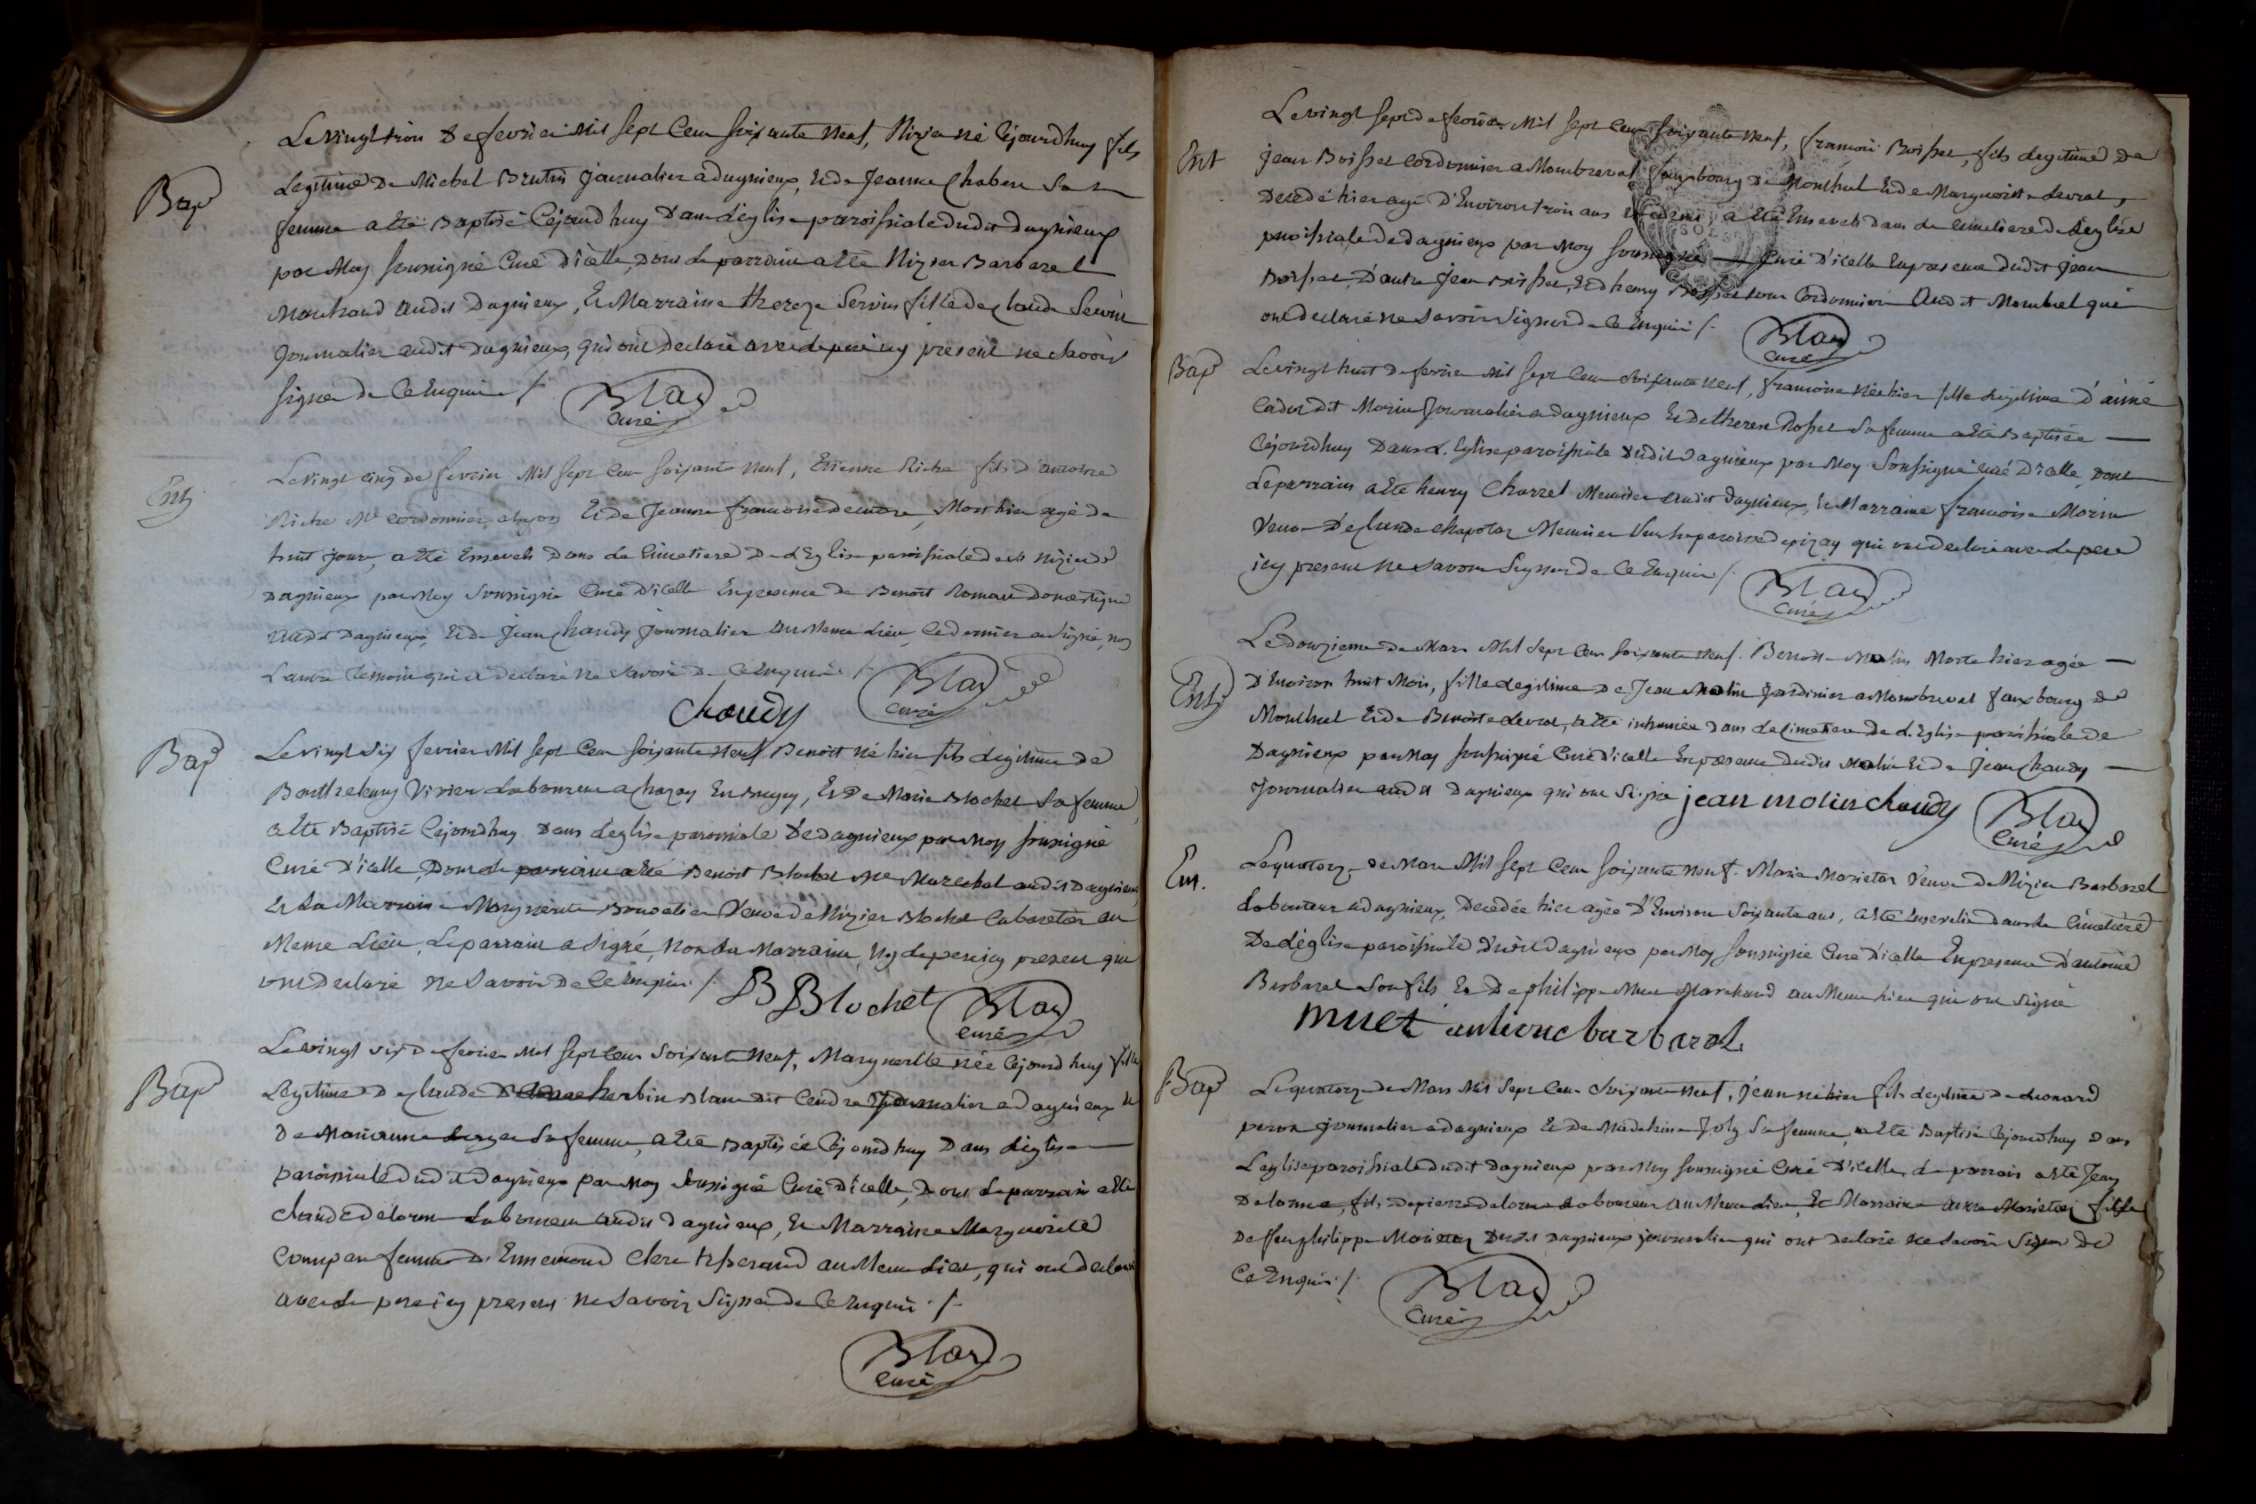 Le vingt trois de fevrier mil sept cent soixante neuf, Nizier né cejourdhuy fils
Bap
legitime de Michel Brutin journalier a dagnieux, et de Jeanne Chaben sa
femme a eté baptisé cejourdhuy dans l'eglise paroissiale dudit dagnieux
par moy soussigné curé d'icelle, dont le parrain a eté Nizier Barbaret
marchand audit dagnieux, et marraine thereze Servin fille de Claude Servin
journalier audit dagnieux, qui ont declaré avec le pere icy present ne scavoir
signer de ce enquis /.
Blay
curé
Le vingt cinq de fevrier mil sept cent soixante neuf, Etienne Riche fils d'antoine
Ent
Riche Me cordonnier a lyon et de Jeanne francoise , mort hier agé de
huit jours, a eté enseveli dans le cimetiere de l'Eglise paroissiale de st Nizier de
dagnieux par moy soussigné curé d'icelle en presence de Benoit Roman domestique
audit dagnieux, et de Jean Chaudy journalier au meme lieu, ce dernier a signé, non
l'autre temoin qui a declaré ne savoir de ce enquis /.
Blay
curé
Chaudy
Bap
Le vingt six fevrier mil sept cent soixante neuf Benoit né hier fils legitime de
Barthelemy Vivier laboureur a Chazay en Bugey, et de Marie Blochet sa femme,
a eté baptisé cejourdhuy dans l'eglise paroissiale de dagnieux par moy soussigné
curé d'icelle, dont le parrain a eté Benoit Blochet Me Marechal audit dagnieux,
et la marraine Marguerite veuve de Nizier Blochet cabaretier au
meme lieu, le parrain a signé, non la marraine, ny le pere icy present qui
ont declaré ne savoir de ce enquis /.
B Blochet
Blay
curé
Le vingt six de fevrier mil sept cent soixante neuf, Marguerite née cejourdhuy fille
Bap
legitime de Claude herbin Blanc dit Cendre journalier a dagnieux et
de Marianne sa femme, a eté baptisée cejourdhuy dans l'eglise
paroissiale dudit dagnieux par moy soussigné curé d'icelle, dont le parrain a eté
Claude delorme laboureur audit dagnieux, et marraine Marguerite
femme d'Ennemond clerc tisserand au meme lieu, qui ont declaré
avec le pere icy present ne savoir signer de ce enquis /.
Blay
curé
Le vingt sept de fevrier mil sept cent soixante neuf, francois Boisset, fils legitime de
Ent
Jean Boisset cordonnier a Montbreval fauxbourg de Montluel et de Marguerite Levrat,
decedé hier agé d'environ trois ans et demi, a eté enseveli dans le cimetiere de l'eglise
paroissiale de dagnieux par moy soussigné curé d'icelle en presence dudit Jean
Boisset, d'autre Jean Boisset, et d'henry Boisset tous cordonniers audit Montluel qui
ont declaré ne savoir signer de ce enquis /.
Blay
curé
Bap
Le vingt huit de fevrier mil sept cent soixante neuf, francoise née hier fille legitime d'aimé
Cadet dit Morin journalier a dagnieux et de therese Rosset sa femme a eté baptisée
cejourdhuy dans l'Eglise paroissiale dudit dagnieux par moy soussigné curé d'icelle, dont
le parrain a eté henry Charret meunier audit dagnieux, et marraine francoise Morin
veuve de Claude Chapotat meunier sur la paroisse de pizay qui ont declaré avec le pere
icy present ne savoir signer de ce enquis /.
Blay
curé
Le douzieme de Mars mil sept cent soixante neuf. Benoite Molin morte hier agée
Ent
d'environ huit mois, fille legitime de Jean Molin jardinier a Montbreval fauxbourg de
Montluel et de Benoite Levrat, a eté inhumée dans le cimetiere de l'Eglise paroissiale de
Dagnieux par moy soussigné curé d'icelle en presence dudit Molin et de Jean Chaudy
journalier audit dagnieux qui ont signé jean molin chaudy
Blay
curé
Ent.
Le quatorze de Mars mil sept cent soixante neuf. Marie Marietar veuve de Nizier Barbaret
laboureur a dagnieux, decedée hier agée d'environ soixante ans, a eté ensevelie dans le cimetiere
de l'eglise paroissiale dudit dagnieux par moy soussigné curé d'icelle en presence d'antoine
Barbaret son fils et de philippe Muet marchand au meme lieu qui ont signé
muet antoine barbaret
Bap
Le quatorze de Mars mil sept cent soixante neuf, Jean né hier fils legitime de Leonard
peron journalier a dagnieux et de Madelaine Joly sa femme, a eté baptisé cejourdhuy dans
l'eglise paroissiale dudit dagnieux par moy soussigné curé d'icelle, le parrain a eté Jean
Delorme, fils de pierre delorme laboureur au meme lieu, et marraine anne Marietar fille
de feu philippe Marietar dudit dagnieux journalier qui ont declaré ne savoir signer de
ce enquis /.
Blay
curé